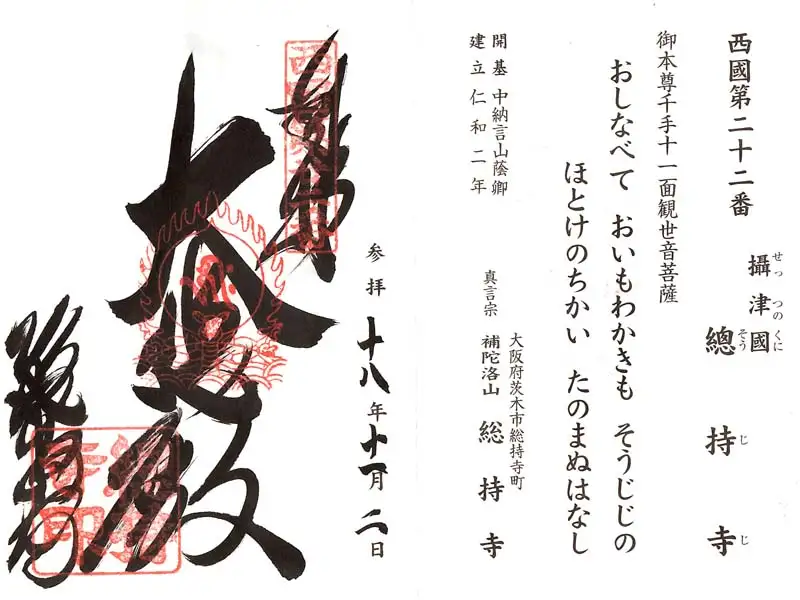 西國第二十二番
攝津國 總持寺
せっつのくに そうじじ
御本尊千手十一面観世音菩薩
おしなべて おいもわかきも そうじじの
ほとけのちかい たのまぬはなし
開基 中納言山蔭卿
建立 仁和二年
大阪府茨木市総持寺町
真言宗 補陀洛山 総持寺
参拝 十八年十一月二日
大悲殿
総持寺